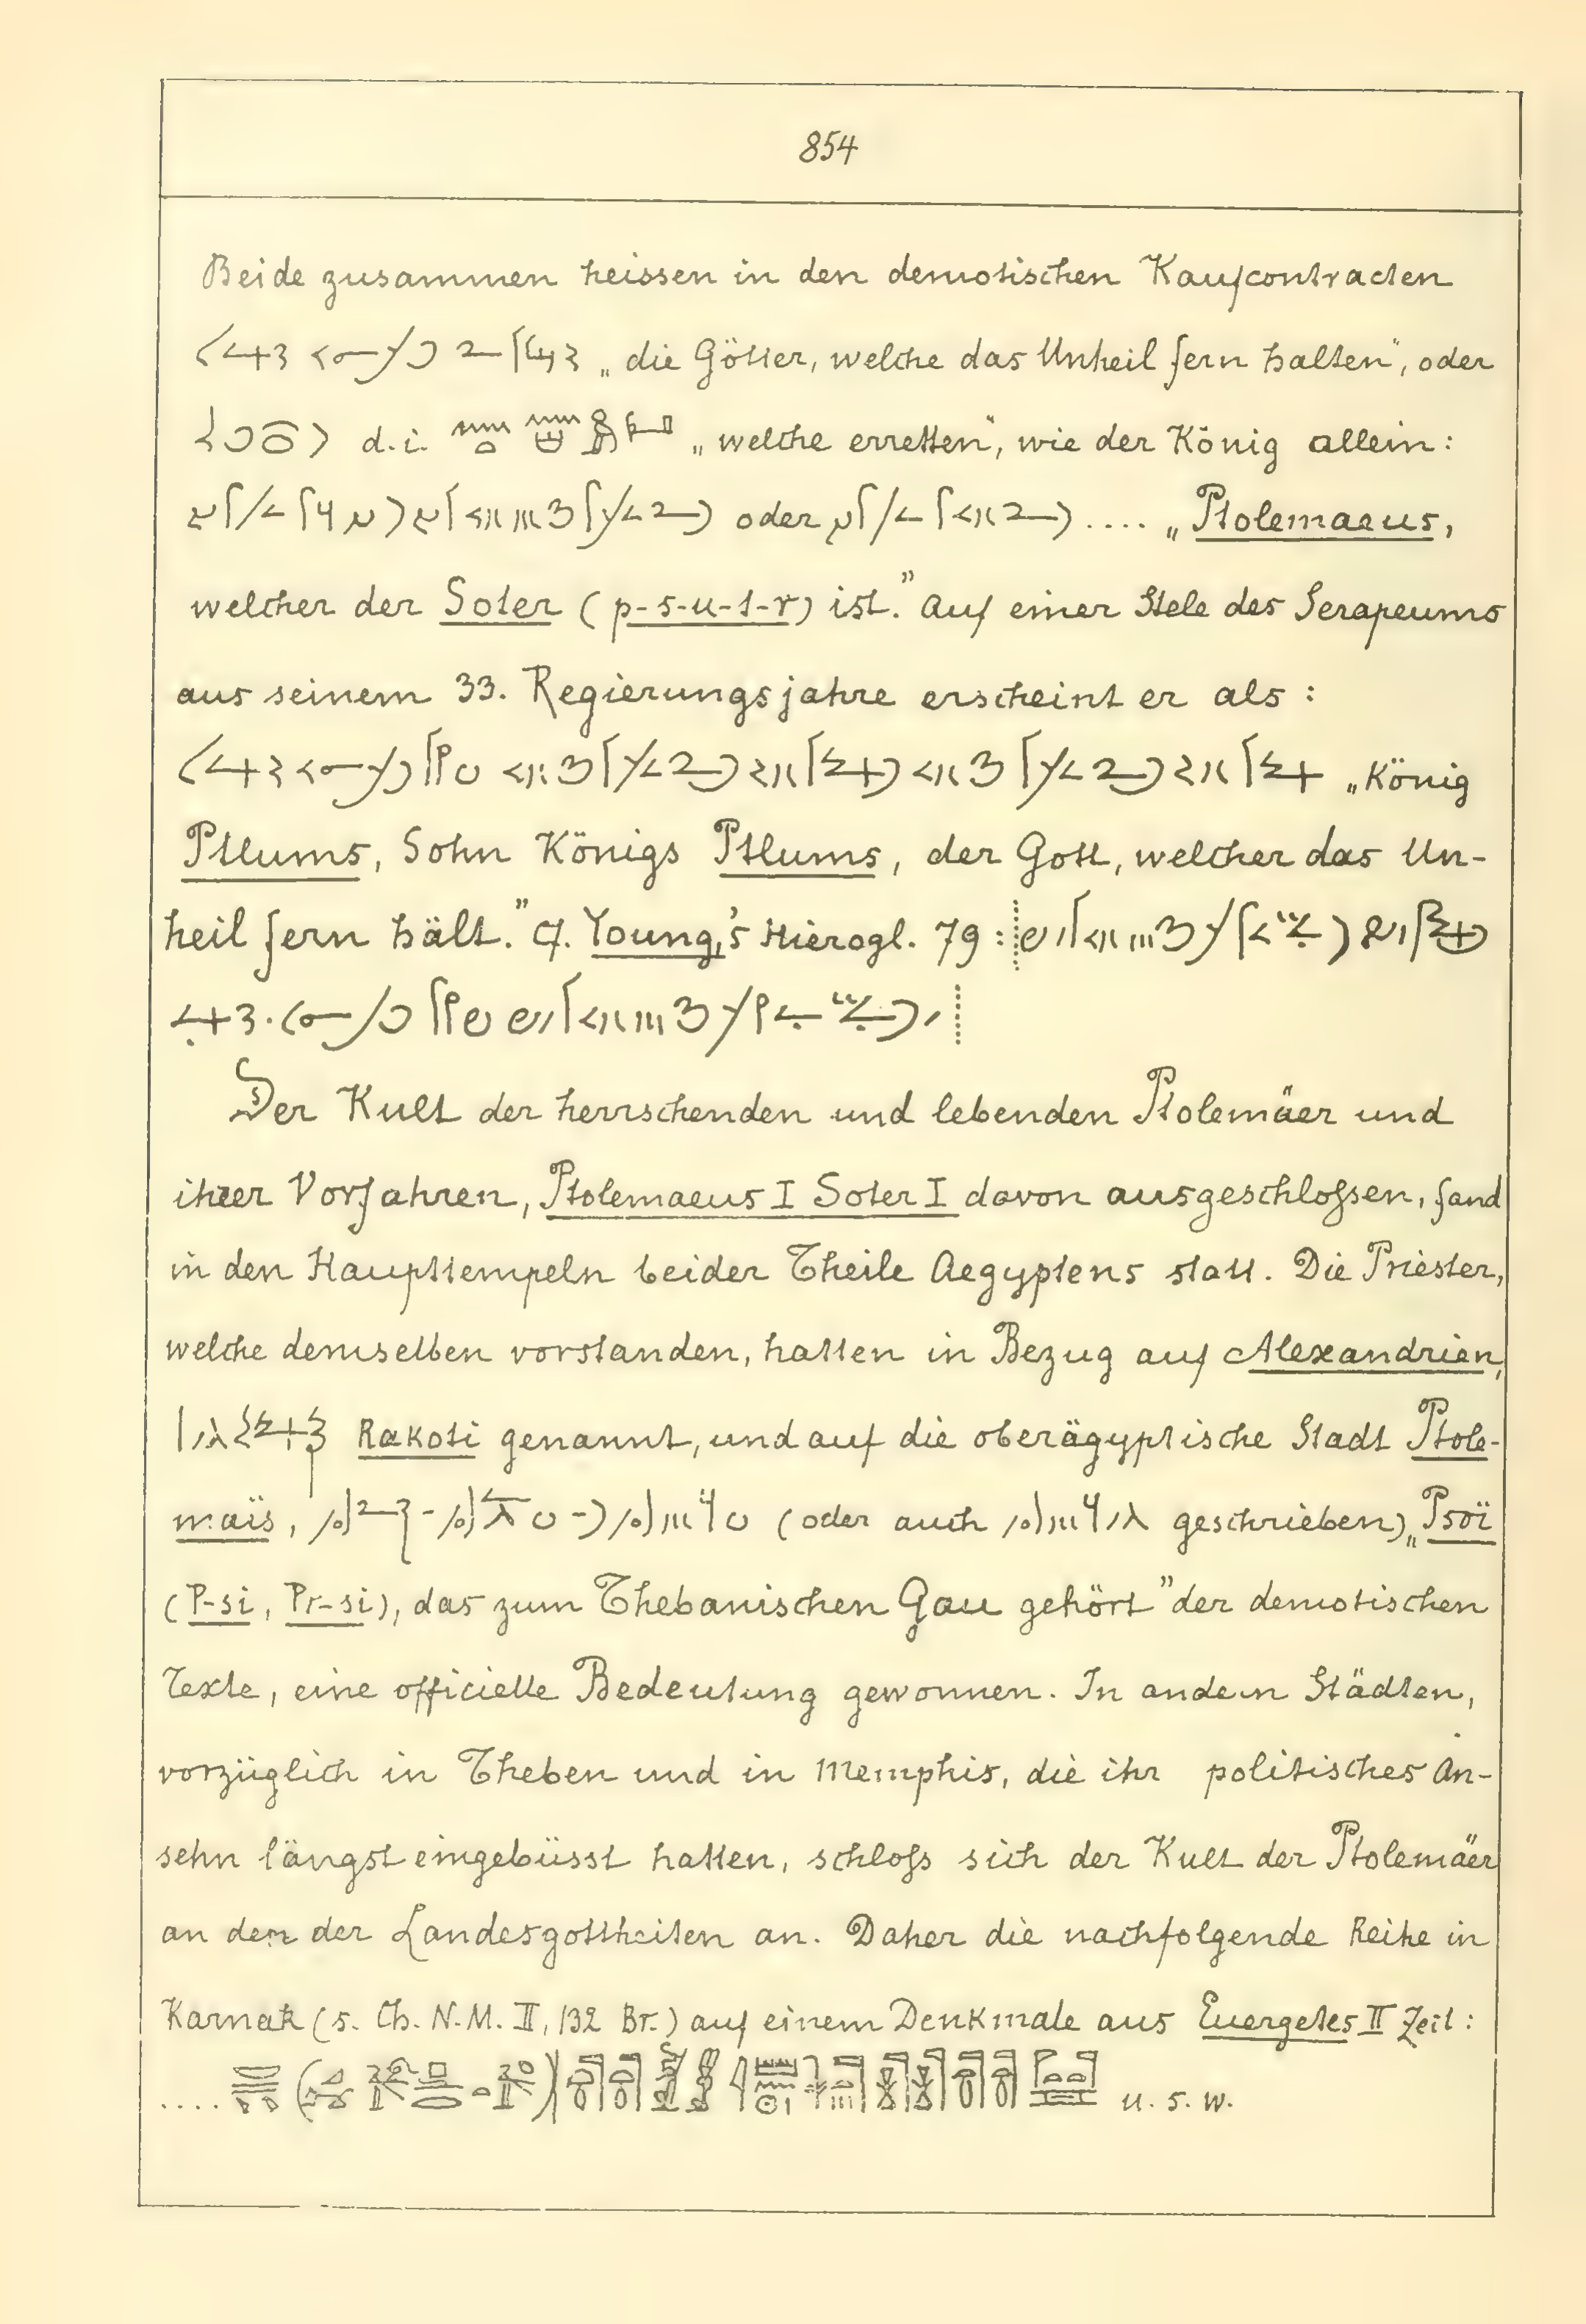 854
Beide zusammen heissen in den demotischen Kaufcontracten
„die Götter, welche das Unheil fern halten", oder
d. i. „welche erretten", wie der König allein:
oder .... „Ptolemaeus,
welcher der Soter (p-s-u-t-r) ist." Auf einer Stele des Serapeums
aus seinem 33. Regierungsjahre erscheint er als:
„König
Ptlums, Sohn Königs Ptlums, der Gott, welcher das Un-
heil fern hält." Cf. Young's Hierogl. 79:
Der Kult der herrschenden und lebenden Ptolemäer und
ihrer Vorfahren, Ptolemaeus I Soter I davon ausgeschloßen, fand
in den Haupttempeln beider Theile Aegyptens statt. Die Priester,
welche demselben vorstanden, hatten in Bezug auf Alexandrien,
Rakoti genannt, und auf die oberägyptische Stadt Ptole-
maïs, (oder auch geschrieben) „Psoï
(P-si, Pr-si), das zum Thebanischen Gau gehört" der demotischen
Texte, eine officielle Bedeutung gewonnen. In andern Städten,
vorzüglich in Theben und in Memphis, die ihr politisches An-
sehn längst eingebüsst hatten, schloß sich der Kult der Ptolemäer
an den der Landesgottheiten an. Daher die nachfolgende Reihe in
Karnak (s. Ch. N. M. II, 132 Br.) auf einem Denkmale aus Euergetes II Zeit:
.... u. s. w.